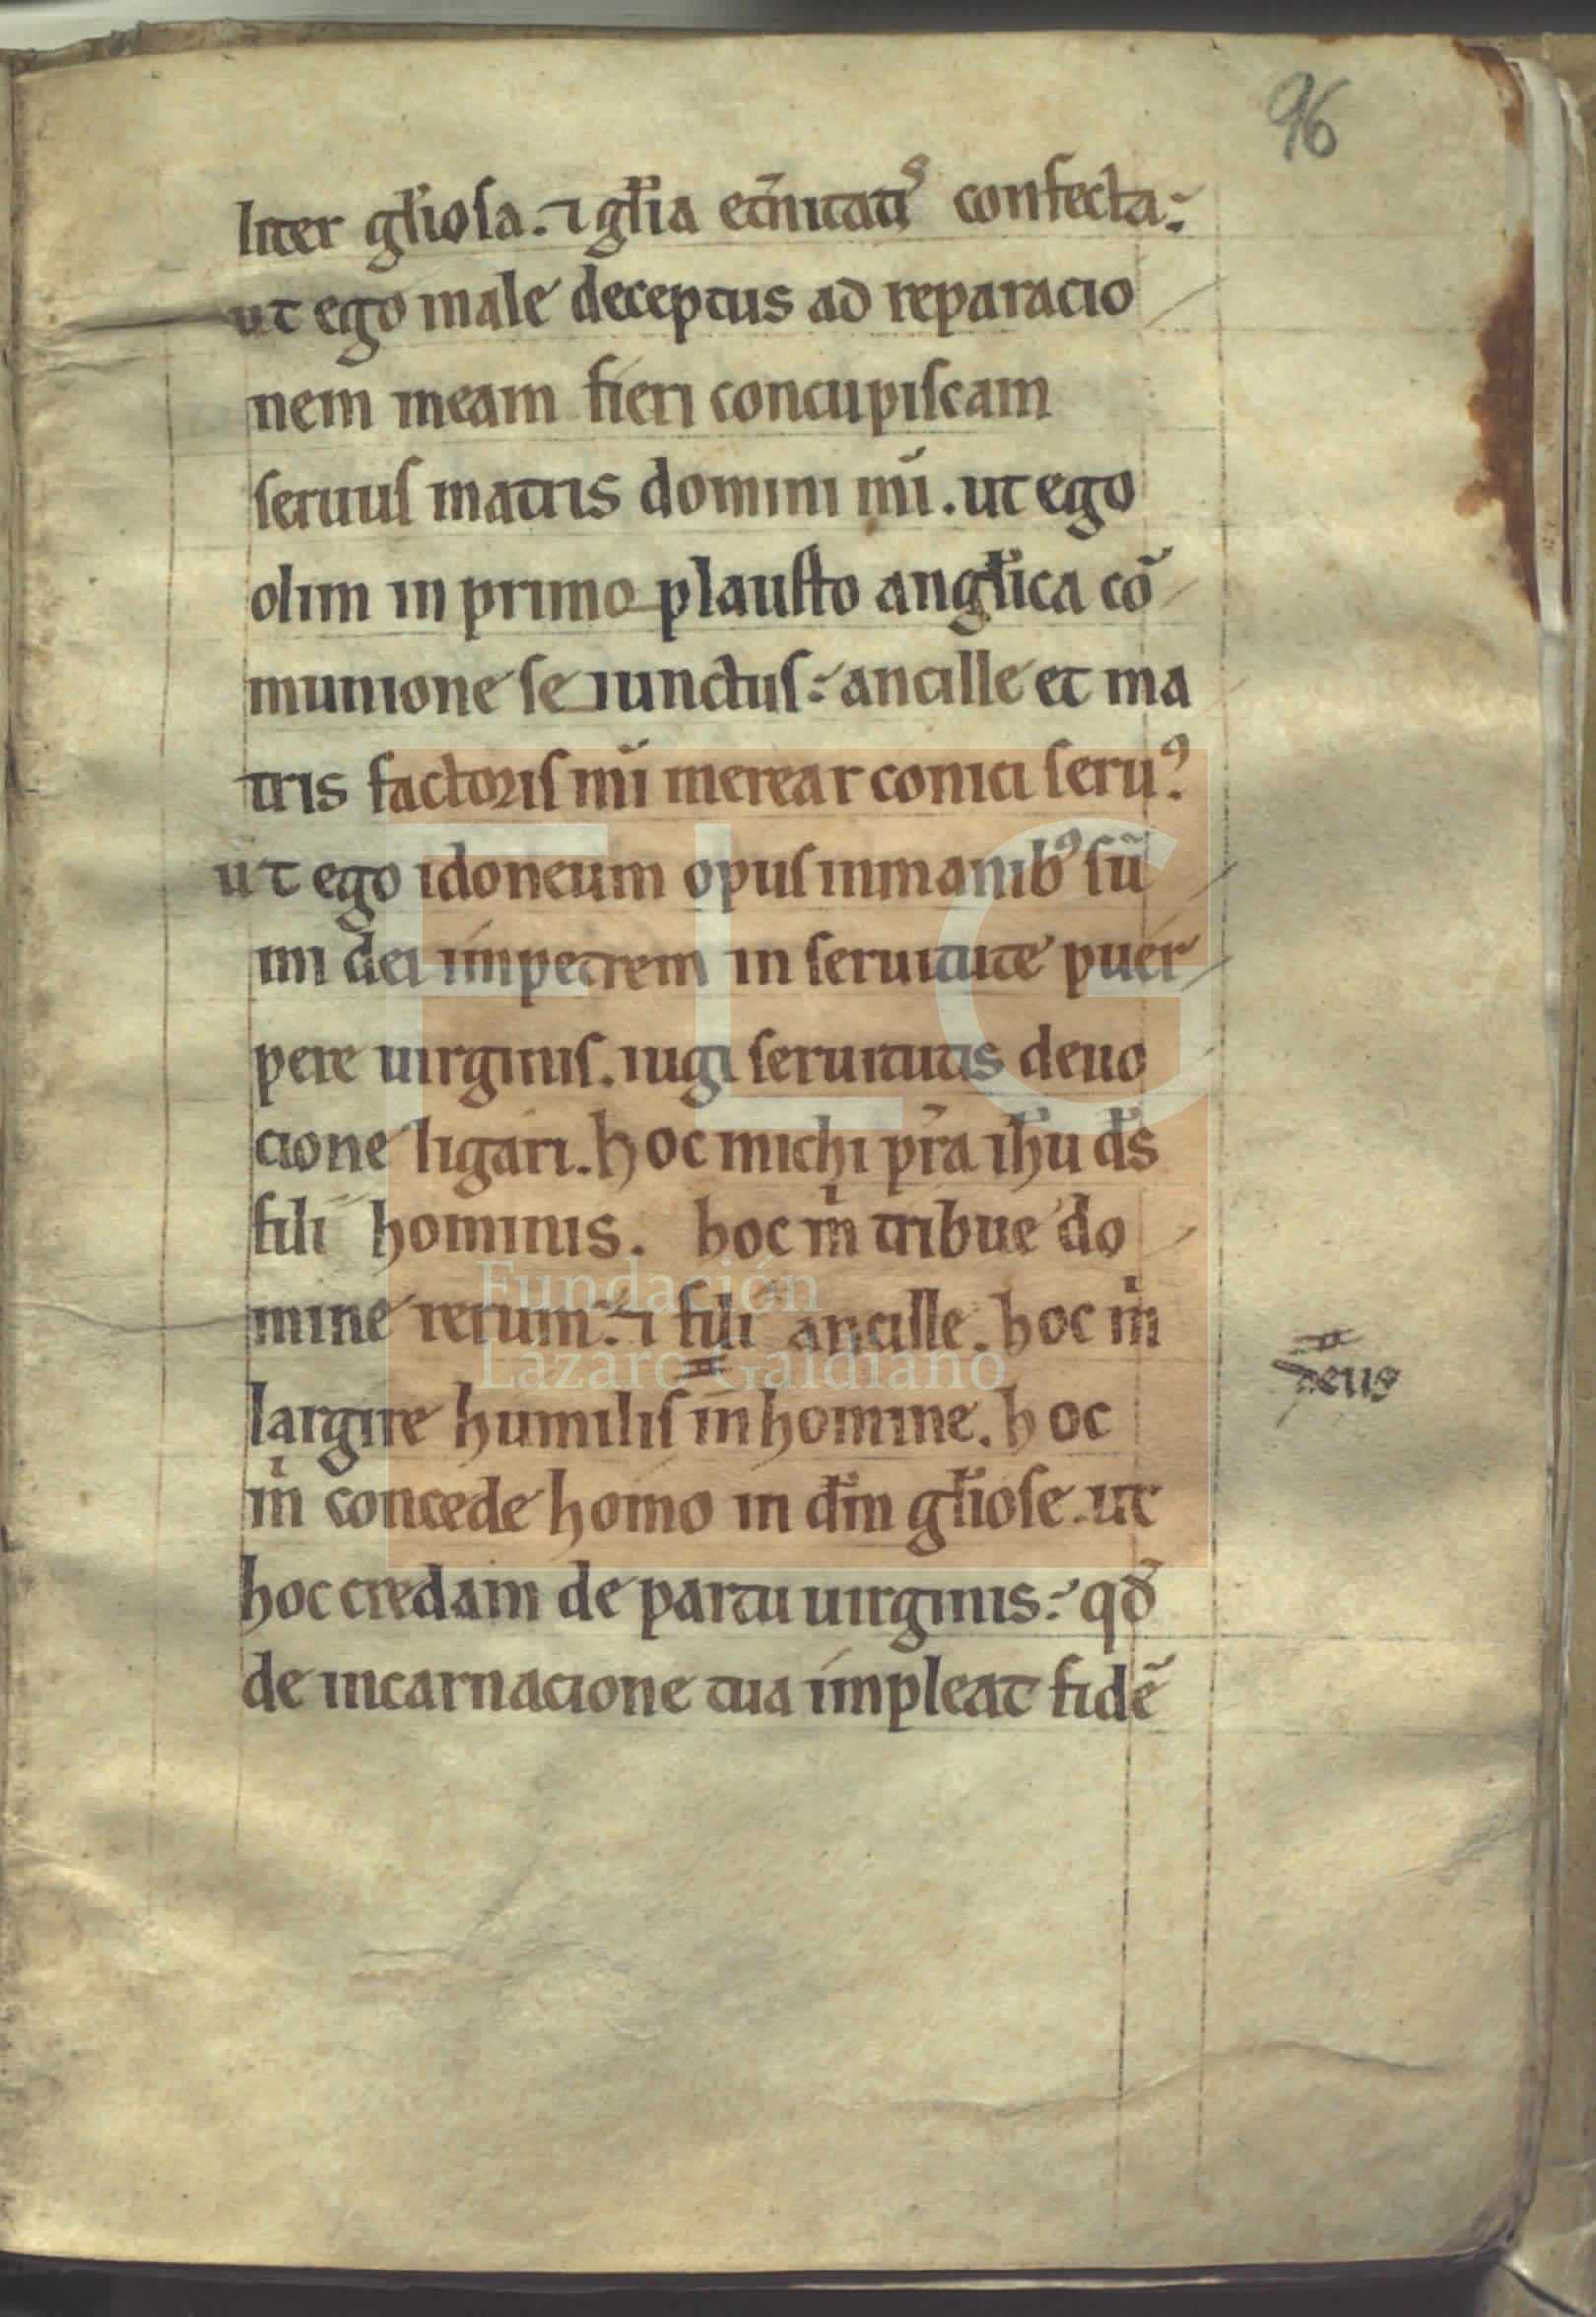 96
liter gl̄iosa. ⁊ gl̄ia et̄nitatiˢ confecta:
ut ego male deceptus ad reparacio
nem meam fieri concupiscam
seruus matris domini mī. ut ego
olim in primo plausto angl̄ica cō
munione se iunctus: ancille et ma
tris factoris mī merear conici seruꝰ
ut ego idoneum opus in manibꝰ sū
mi dei impetrem in seruitute puer
pere uirginis. iugi seruitutis deuo
cione ligari. hoc michi pr̄a ih̄u ds̄
fili hominis. hoc mͥ tribue do
mine rerum: ⁊ fili ancille. hoc mͥ
largire humilis in̄ homine. hoc
deus
mͥ concede homo in dm̄ gl̄iose. ut
hoc credam de partu uirginis: qđ
de incarnacione tua impleat fidē
FLG
Fundación
Lázaro Galdiano